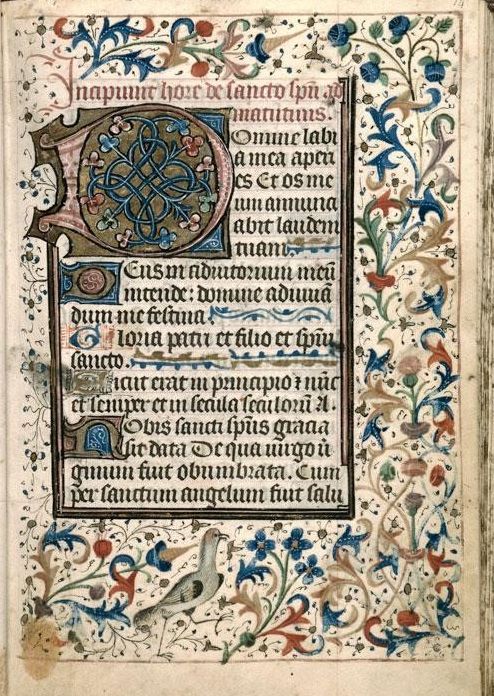 Incipiunt hore de sancto spu ad
matutinis.
Domine labi
a mea aperi
es Et os me
um annunci
abit laudem
tuam.
Deus in adiutorium meū
intende: domine adiuuā
dum me festina
Gloria patri et filio et spūi
sancto.
Sicut erat in principio ⁊ nūc
et semper et in secula seculorū A.
Nobis sancti spūs gracia
sit data De qua uirgo ui
ginum fuit obumbrata. Cum
per sanctum angelum fuit salu